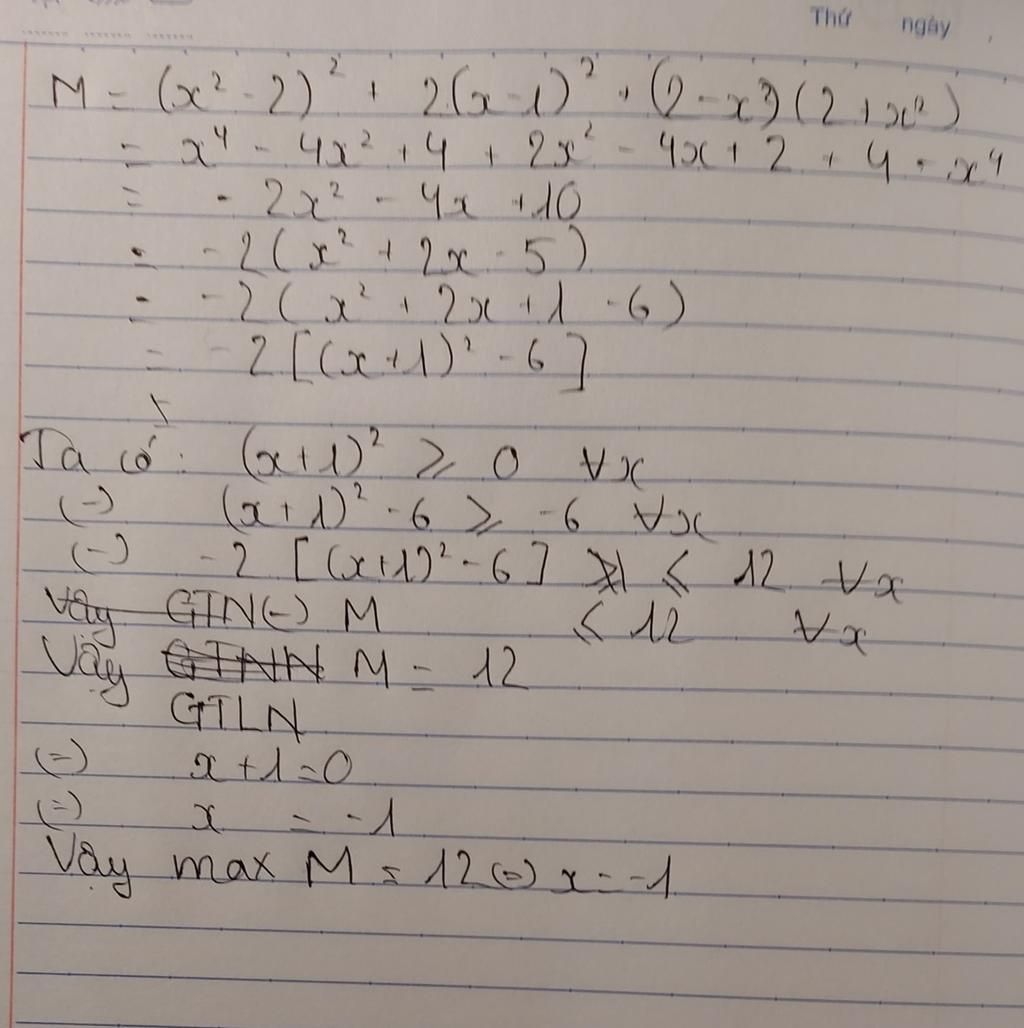 Thứ ngày
M = (x² - 2)² + 2(x - 1)² + (2 - x²)(2 + x²)
= x⁴ - 4x² + 4 + 2x² - 4x + 2 + 4 - x⁴
= - 2x² - 4x + 10
= - 2(x² + 2x - 5)
= - 2(x² + 2x + 1 - 6)
= - 2[(x + 1)² - 6]
Ta có: (x + 1)² ≥ 0 ∀x
(=) (x + 1)² - 6 ≥ -6 ∀x
(=) - 2 [(x + 1)² - 6] ≤ 12 ∀x
Vậy GTN(=) M ≤ 12 ∀x
Vậy GTNN M = 12
GTLN
(=) x + 1 = 0
(=) x = - 1
Vậy max M = 12 (=) x = -1